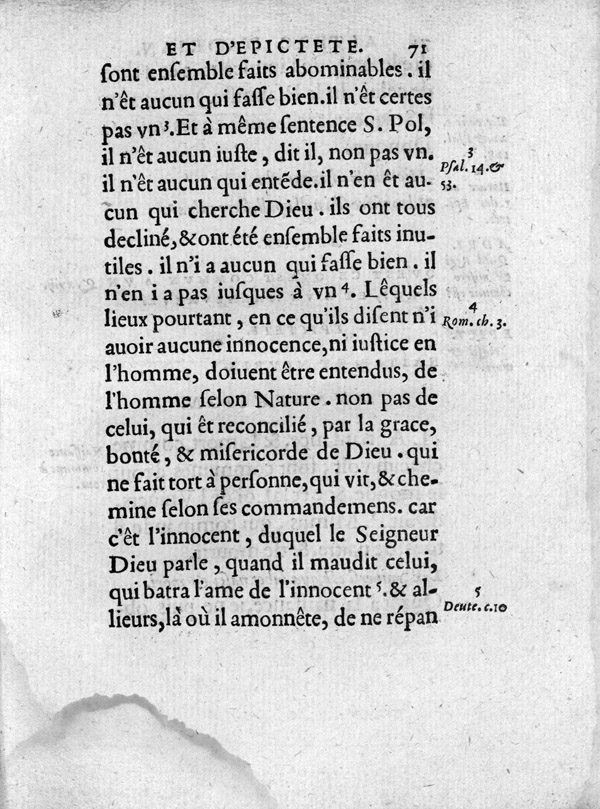 ET D'EPICTETE. 71
ſont enſemble faits abominables. il
n'êt aucun qui faſſe bien. il n'êt certes
pas vn 3. Et à même ſentence S. Pol,
il n'êt aucun iuſte, dit il, non pas vn.
il n'êt aucun qui entẽde. il n'en êt au-
cun qui cherche Dieu. ils ont tous
decliné, & ont été enſemble faits inu-
tiles. il n'i a aucun qui faſſe bien. il
n'en i a pas iuſques à vn 4. Lêquels
lieux pourtant, en ce qu'ils diſent n'i
auoir aucune innocence, ni iuſtice en
l'homme, doiuent être entendus, de
l'homme ſelon Nature. non pas de
celui, qui êt reconcilié, par la grace,
bonté, & miſericorde de Dieu. qui
ne fait tort à perſonne, qui vit, & che-
mine ſelon ſes commandemens. car
c'êt l'innocent, duquel le Seigneur
Dieu parle, quand il maudit celui,
qui batra l'ame de l'innocent 5. & al-
lieurs, là où il amonnête, de ne répan
3
Pſal. 14. &
53.
4
Rom. ch. 3.
5
Deute. c. 10